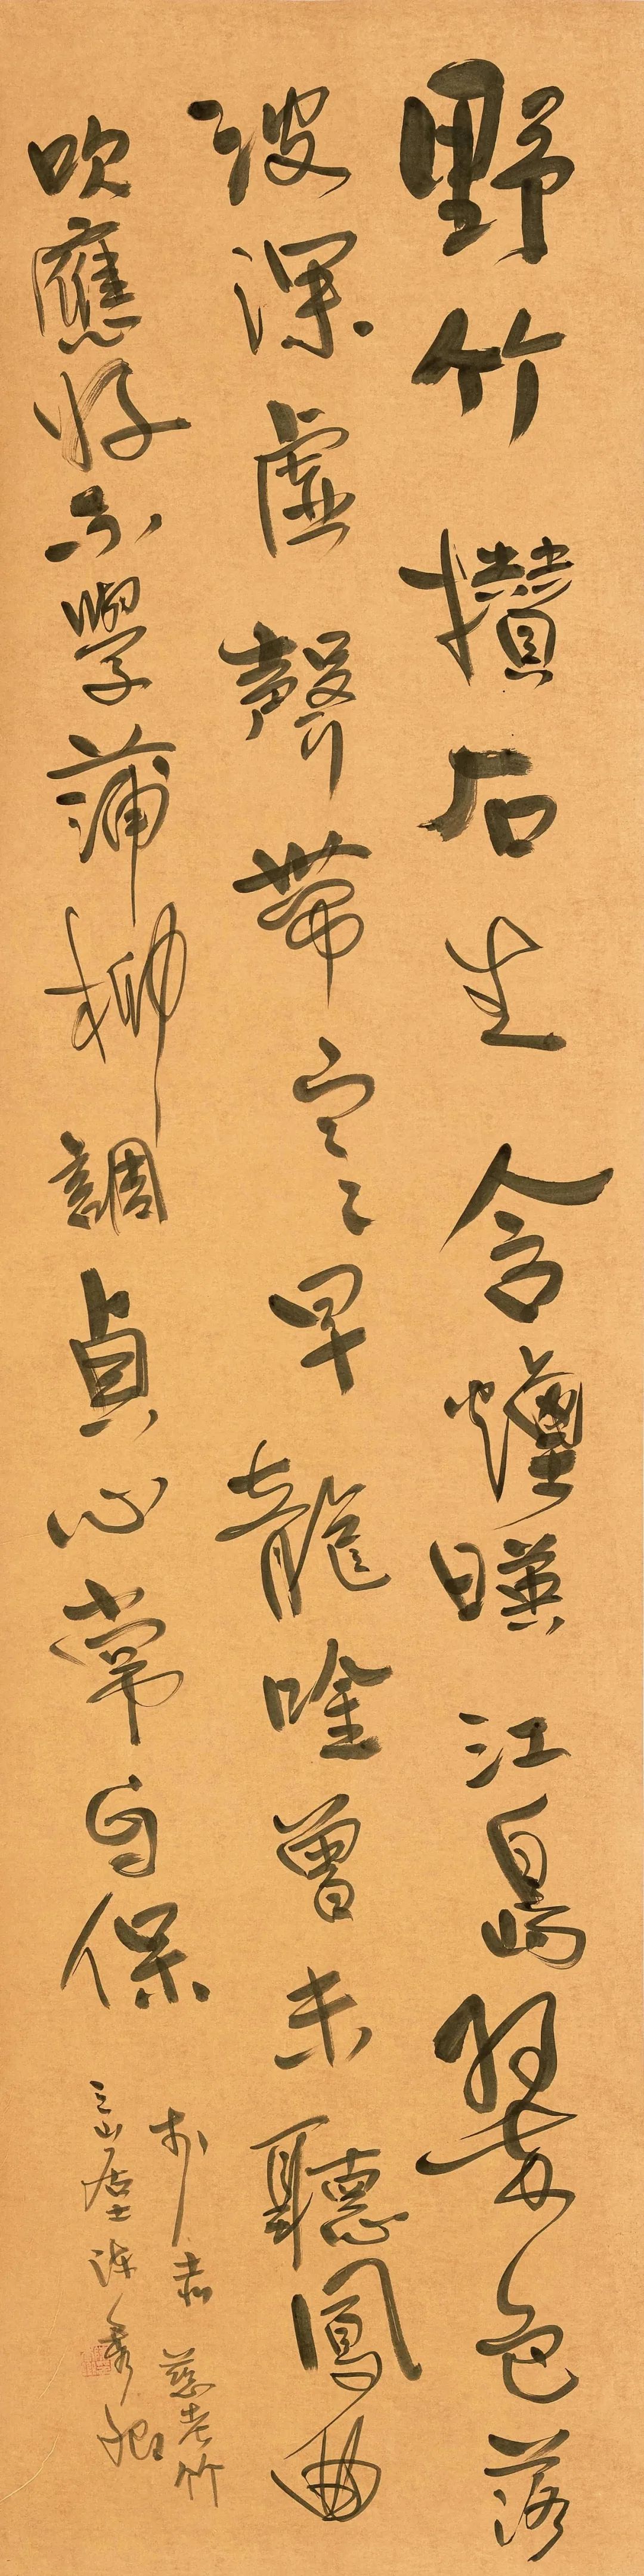 野竹攢石生含煙暎江島翠色落
波深虛聲帶寒早龍唫曾未聽鳳曲
吹應好不學蒲柳調貞心常自保
慈老竹
山居士陳秀卿